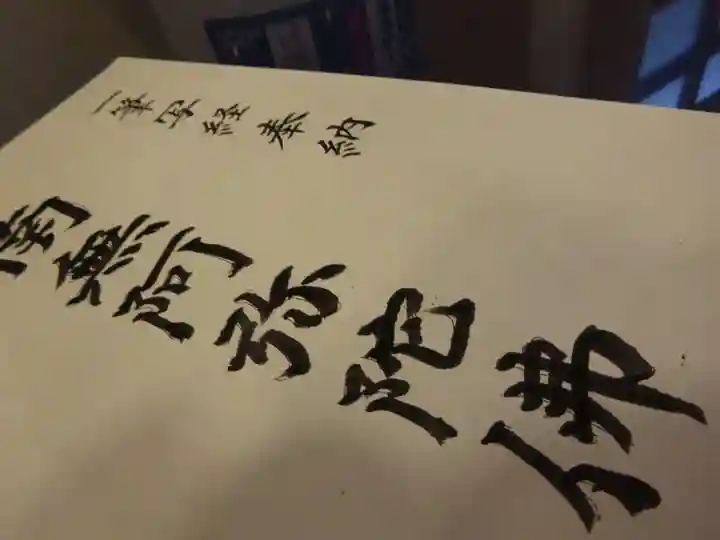 一筆写経奉納
南無阿弥陀佛